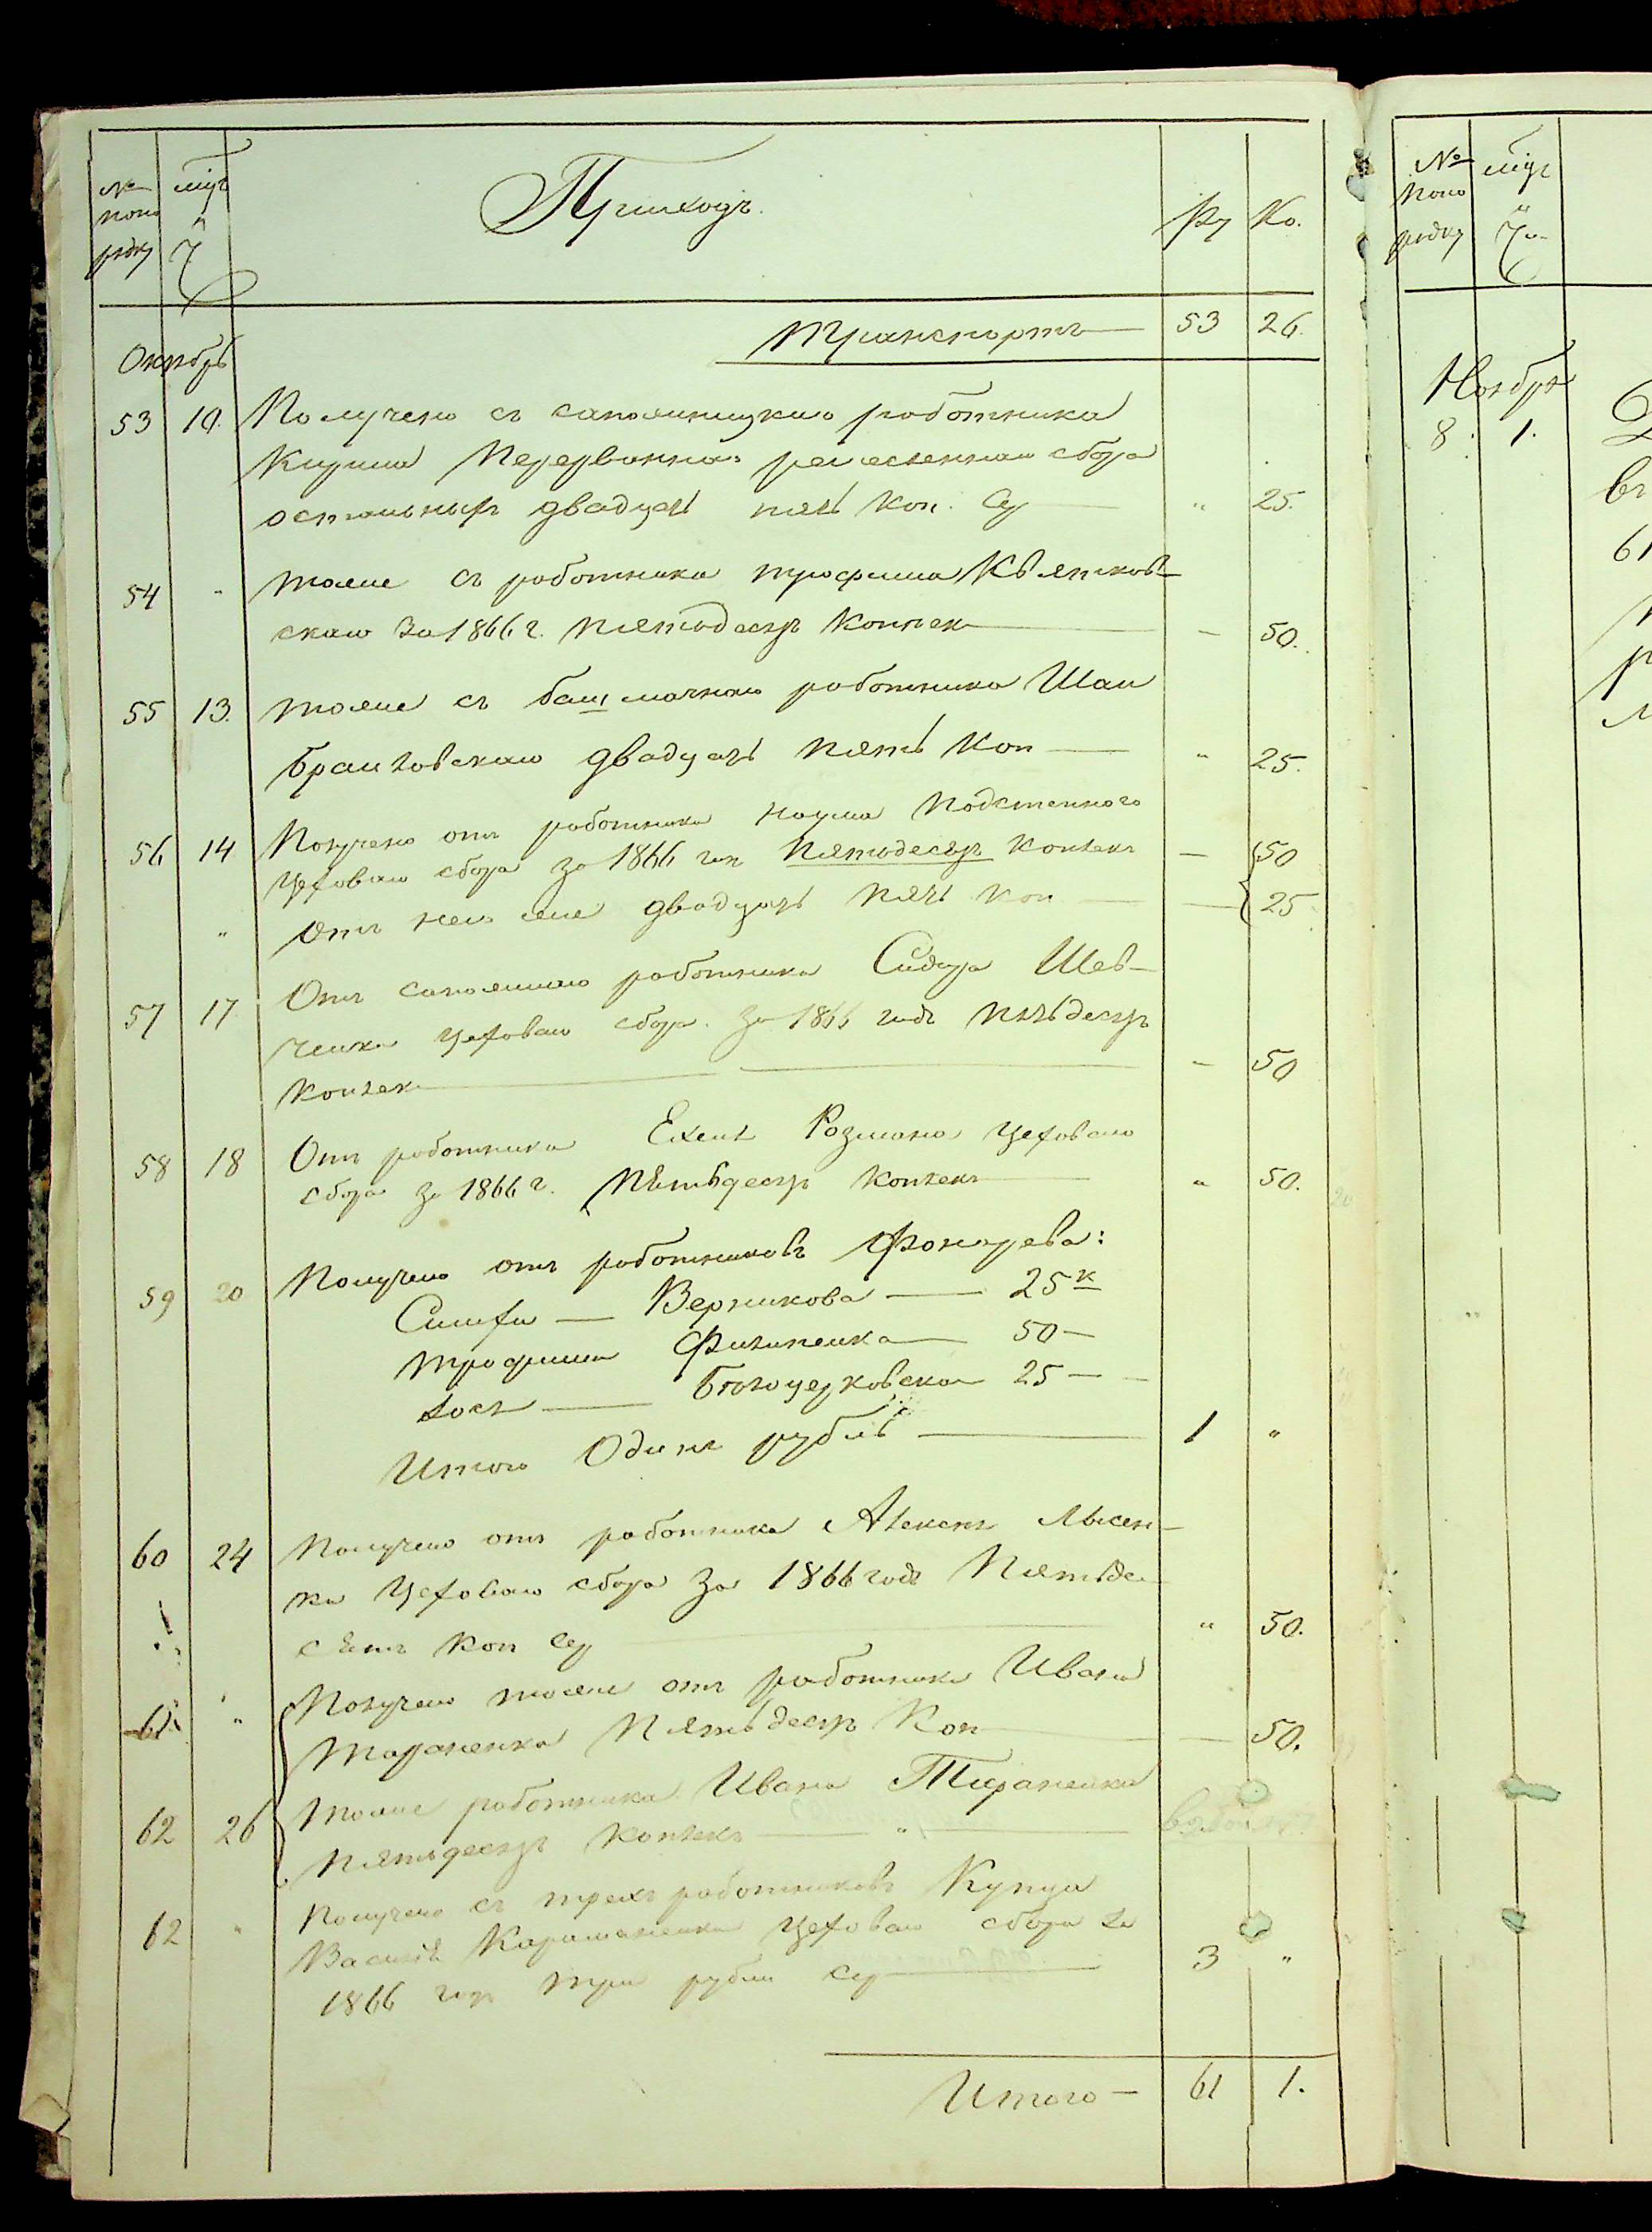 № поно рядку
мцъ и ч.
Приходъ.
Ру Ко.
Транспортъ — 53 26.
Октябрь
53 10. Получено съ сапожницкаго работника
Кирила Передванна: ремесленнаго сбора
остальныхъ двадцать пять коп. Се — " 25.
54 " тоже съ работника трофима Квятков-
скаго За 1866 г. пятьдесятъ копѣек — — 50.
55 13. тоже съ башмачнаго работника Шаи
Браиловскаго двадцать пять коп — " 25.
56 14 Получено отъ работника Наума Подстенного
Цеховаго сбора за 1866 годъ Пятьдесятъ копѣекъ — 50
" Отъ него же двадцать пять коп — — 25
57 17 Отъ сапожнаго работника Сидора Шев-
ченка Цеховаго сбора. за 1866 годъ пятьдесятъ
копѣек — — 50
58 18 Отъ работника Розмана Цеховаго
сбора за 1866 г. Пѣтьдесятъ копѣекъ " 50.
59 20 Получено отъ работниковъ Фонарева:
Симхи — Верникова — 25 к
Трофима Филипенка — 50 —
Іосѣ — Бѣлоцерковска 25 —
Итого Одинъ рубль — 1 "
60 24 Получено отъ работника Алексѣя Лысен-
ка Цеховаго сбора За 1866 годъ Пятьде-
сѣтъ коп Се " 50.
61. " Получено тоже отъ работника Ивана
Тараненка Пятьдесятъ Коп — — 50.
62 26 Тоже работника Ивана Тараненка
Пятьдесятъ копѣекъ — " —
62 " Получено съ трехъ работниковъ Купца
Василѣ Цеховаго сбора за
1866 годъ три рубли Се — 3 "
Итого — 61 1.
№ поно рядку
мцъ и ч.
Ноября
8. 1.